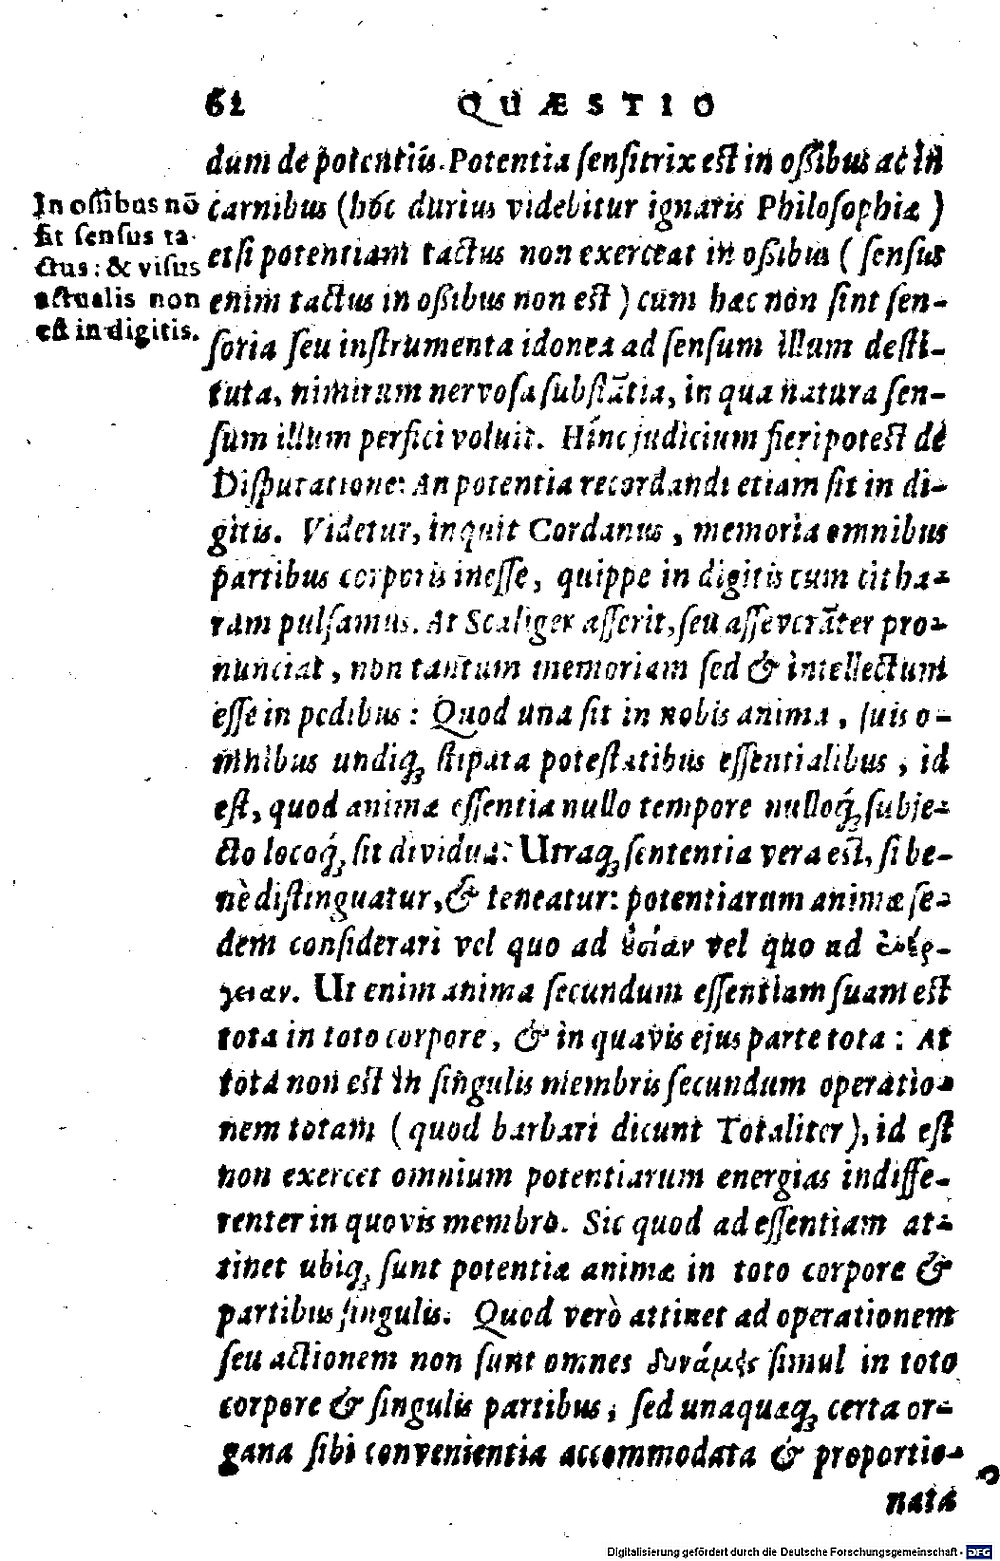 62 QUÆSTIO
dum de potentiis. Potentia sensitrix est in oßibus ac in
carnibus (hoc durius videbitur ignaris Philosophiæ)
etsi potentiam tactus non exerceat in oßibus (sensus
enim tactus in oßibus non est) cum hæc non sint sen-
soria seu instrumenta idonea ad sensum illum desti-
tuta, nimirum nervosa substãtia, in qua natura sen-
sum illum perfici voluit. Hinc judicium fieri potest de
Disputatione: An potentia recordandi etiam sit in di-
gitis. Videtur, inquit Cordanus, memoria omnibus
partibus corporis inesse, quippe in digitis cum citha-
ram pulsamus. At Scaliger asserit, seu asseverãter pro-
nunciat, non tantum memoriam sed & intellectum
esse in pedibus: Quod una sit in nobis anima, suis o-
mnibus undiq; stipata potestatibus essentialibus, id
est, quod animæ essentia nullo tempore nulloq́; subje-
cto locoq́; sit dividua: Utraq; sententia vera est, si be-
nè distinguatur, & teneatur: potentiarum animæ se-
dem considerari vel quo ad ȣ̓σίαν vel quo ad ἐνέρ-
γειαν. Ut enim anima secundum essentiam suam est
tota in toto corpore, & in quavis ejus parte tota: At
tota non est in singulis membris secundum operatio-
nem totam (quod barbari dicunt Totaliter), id est
non exercet omnium potentiarum energias indiffe-
renter in quovis membro. Sic quod ad essentiam at-
tinet ubiq; sunt potentiæ animæ in toto corpore &
partibus singulis. Quod verò attinet ad operationem
seu actionem non sunt omnes δυνάμεις simul in toto
corpore & singulis partibus, sed unaquæq; certa or-
gana sibi convenientia accommodata & proportio-
nata
In ossibus nõ
fit sensus ta-
ctus: & visus
actualis non
est in digitis.
Digitalisierung gefördert durch die Deutsche Forschungsgemeinschaft - DFG